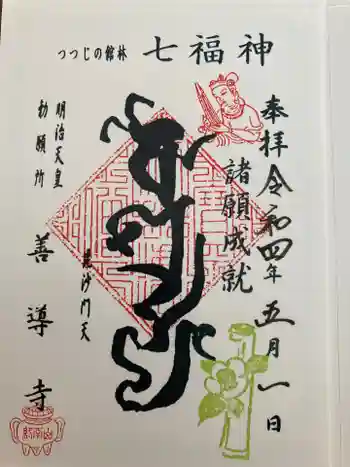 つつじの館林 七福神
奉拝 令和四年 五月一日
諸願成就
毘沙門天
明治天皇
勅願所
善導寺